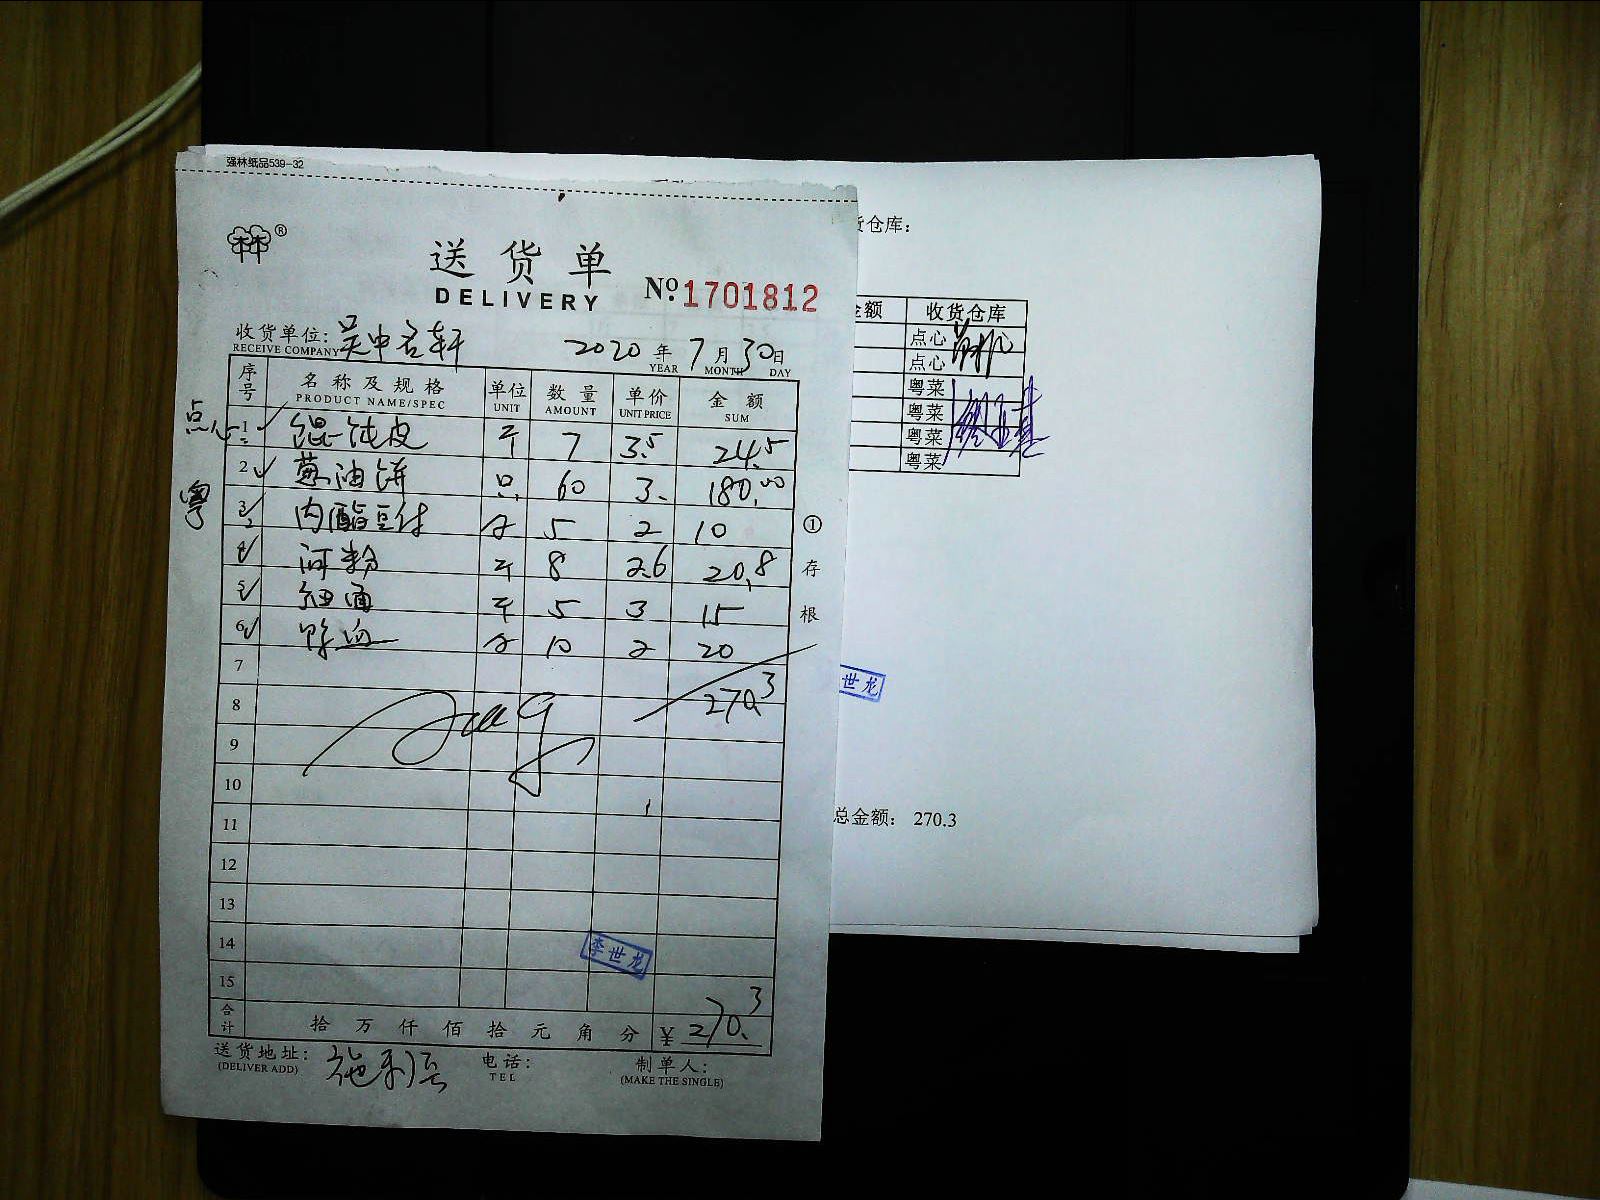 强林纸品539-32
®
送货单
DELIVERY
№ 1701812
收货单位: 吴中名轩
RECEIVE COMPANY
2020 年 7 月 30 日
YEAR MONTH DAY
序号 名称及规格 单位 数量 单价 金额
PRODUCT NAME/SPEC UNIT AMOUNT UNIT PRICE SUM
点心 1 馄饨皮 斤 7 3.5 24.5
2 葱油饼 只 60 3. 180.00
粤 3 内酯豆付 5 2 10
4 河粉 斤 8 2.6 20.8
5 细面 斤 5 3 15
6 鸭血 10 2 20
7
8 270.3
9
10
11
12
13
14
15
李世龙
合计 拾 万 仟 佰 拾 元 角 分 ¥ 270.3
送货地址: 电话: 制单人:
(DELIVER ADD) TEL (MAKE THE SINGLE)
① 存根
货仓库:
金额 收货仓库
点心
点心
粤菜
粤菜
粤菜
粤菜
世龙
总金额: 270.3